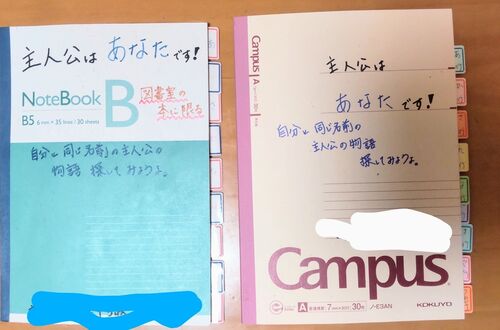 主人公は あなたです!
NoteBook B
B5 6 mm × 35 lines / 30 sheets
図書室の
本に限る
自分と同じ名前の主人公の
物語 探してみようよ。
Campus A
主人公は
あなたです!
自分と同じ名前の
主人公の物語
探してみようよ。
Campus
A 普通横罫 7 mm 30枚 ノ-E3AN KOKUYO